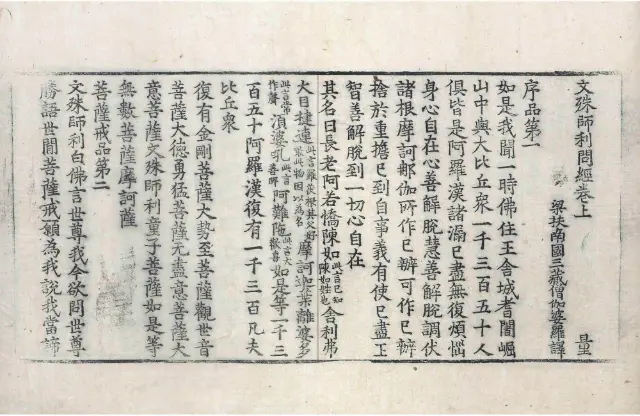 文殊師利問經卷上
梁扶南國三藏僧伽婆羅譯
量
序品第一
如是我聞一時佛住王舍城耆闍崛
山中與大比丘衆一千三百五十人
俱皆是阿羅漢諸漏已盡無復煩惱
身心自在心善解脫慧善解脫調伏
諸根摩訶那伽所作已辦可作已辦
捨於重擔已到自事義有使已盡正
智善解脫到一切心自在
其名曰長老阿若憍陳如此言已知陳如姓也舍利弗
大目揵連此言羅茯根其父好摩訶迦葉離婆多
此言常作聲湏婆吼此言善聲阿難陁此言大歡喜如是等一千三
百五十阿羅漢復有一千三百凡夫
比丘衆
復有金剛菩薩大勢至菩薩觀世音
菩薩大德勇猛菩薩无盡意菩薩大
意菩薩文殊師利童子菩薩如是等
無數菩薩摩訶薩
菩薩戒品第二
文殊師利白佛言世尊我今欲問世尊
勝語世間菩薩戒願為我說我當諦